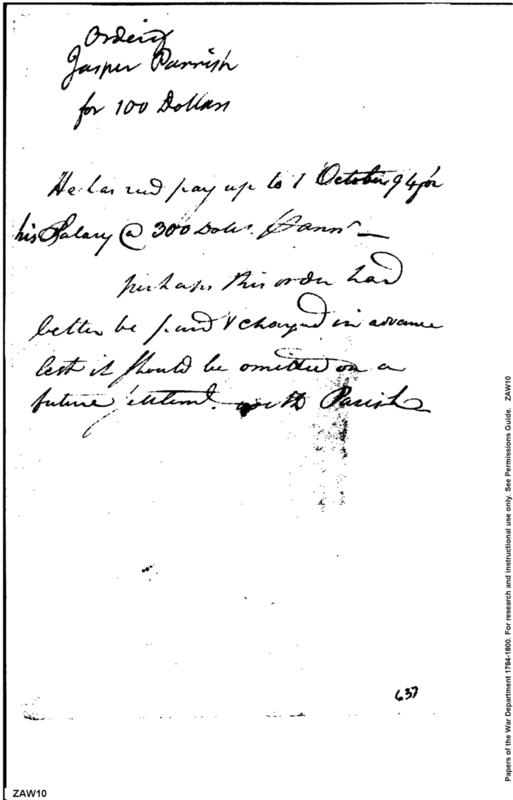 Order of
Jasper Parrish
for 100 Dollars
He has recd pay up to 1 October 94 for
his Salary @ 300 Dolls. p ann.
perhaps this order had
better be paid & charged in advance
lest it should be omitted on a
future settlemt. with Parish
637
ZAW10
Papers of the War Department 1784-1800. For research and instructional use only. See Permissions Guide. ZAW10